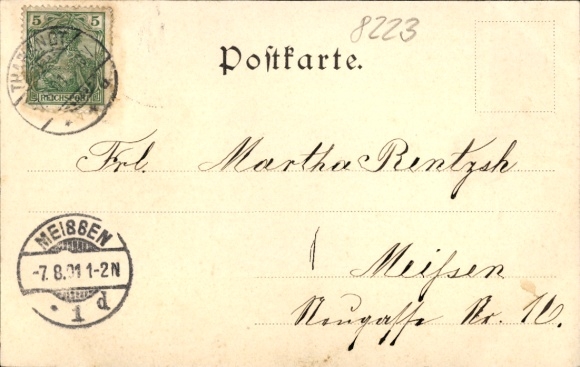 8223
5 5
REICHSPOST
THARANDT
Postkarte.
Frl. Martha Rentzsh
MEISSEN
-7.8.01 1-2N
1 d
Meißen
Neugasse Nr. 16.